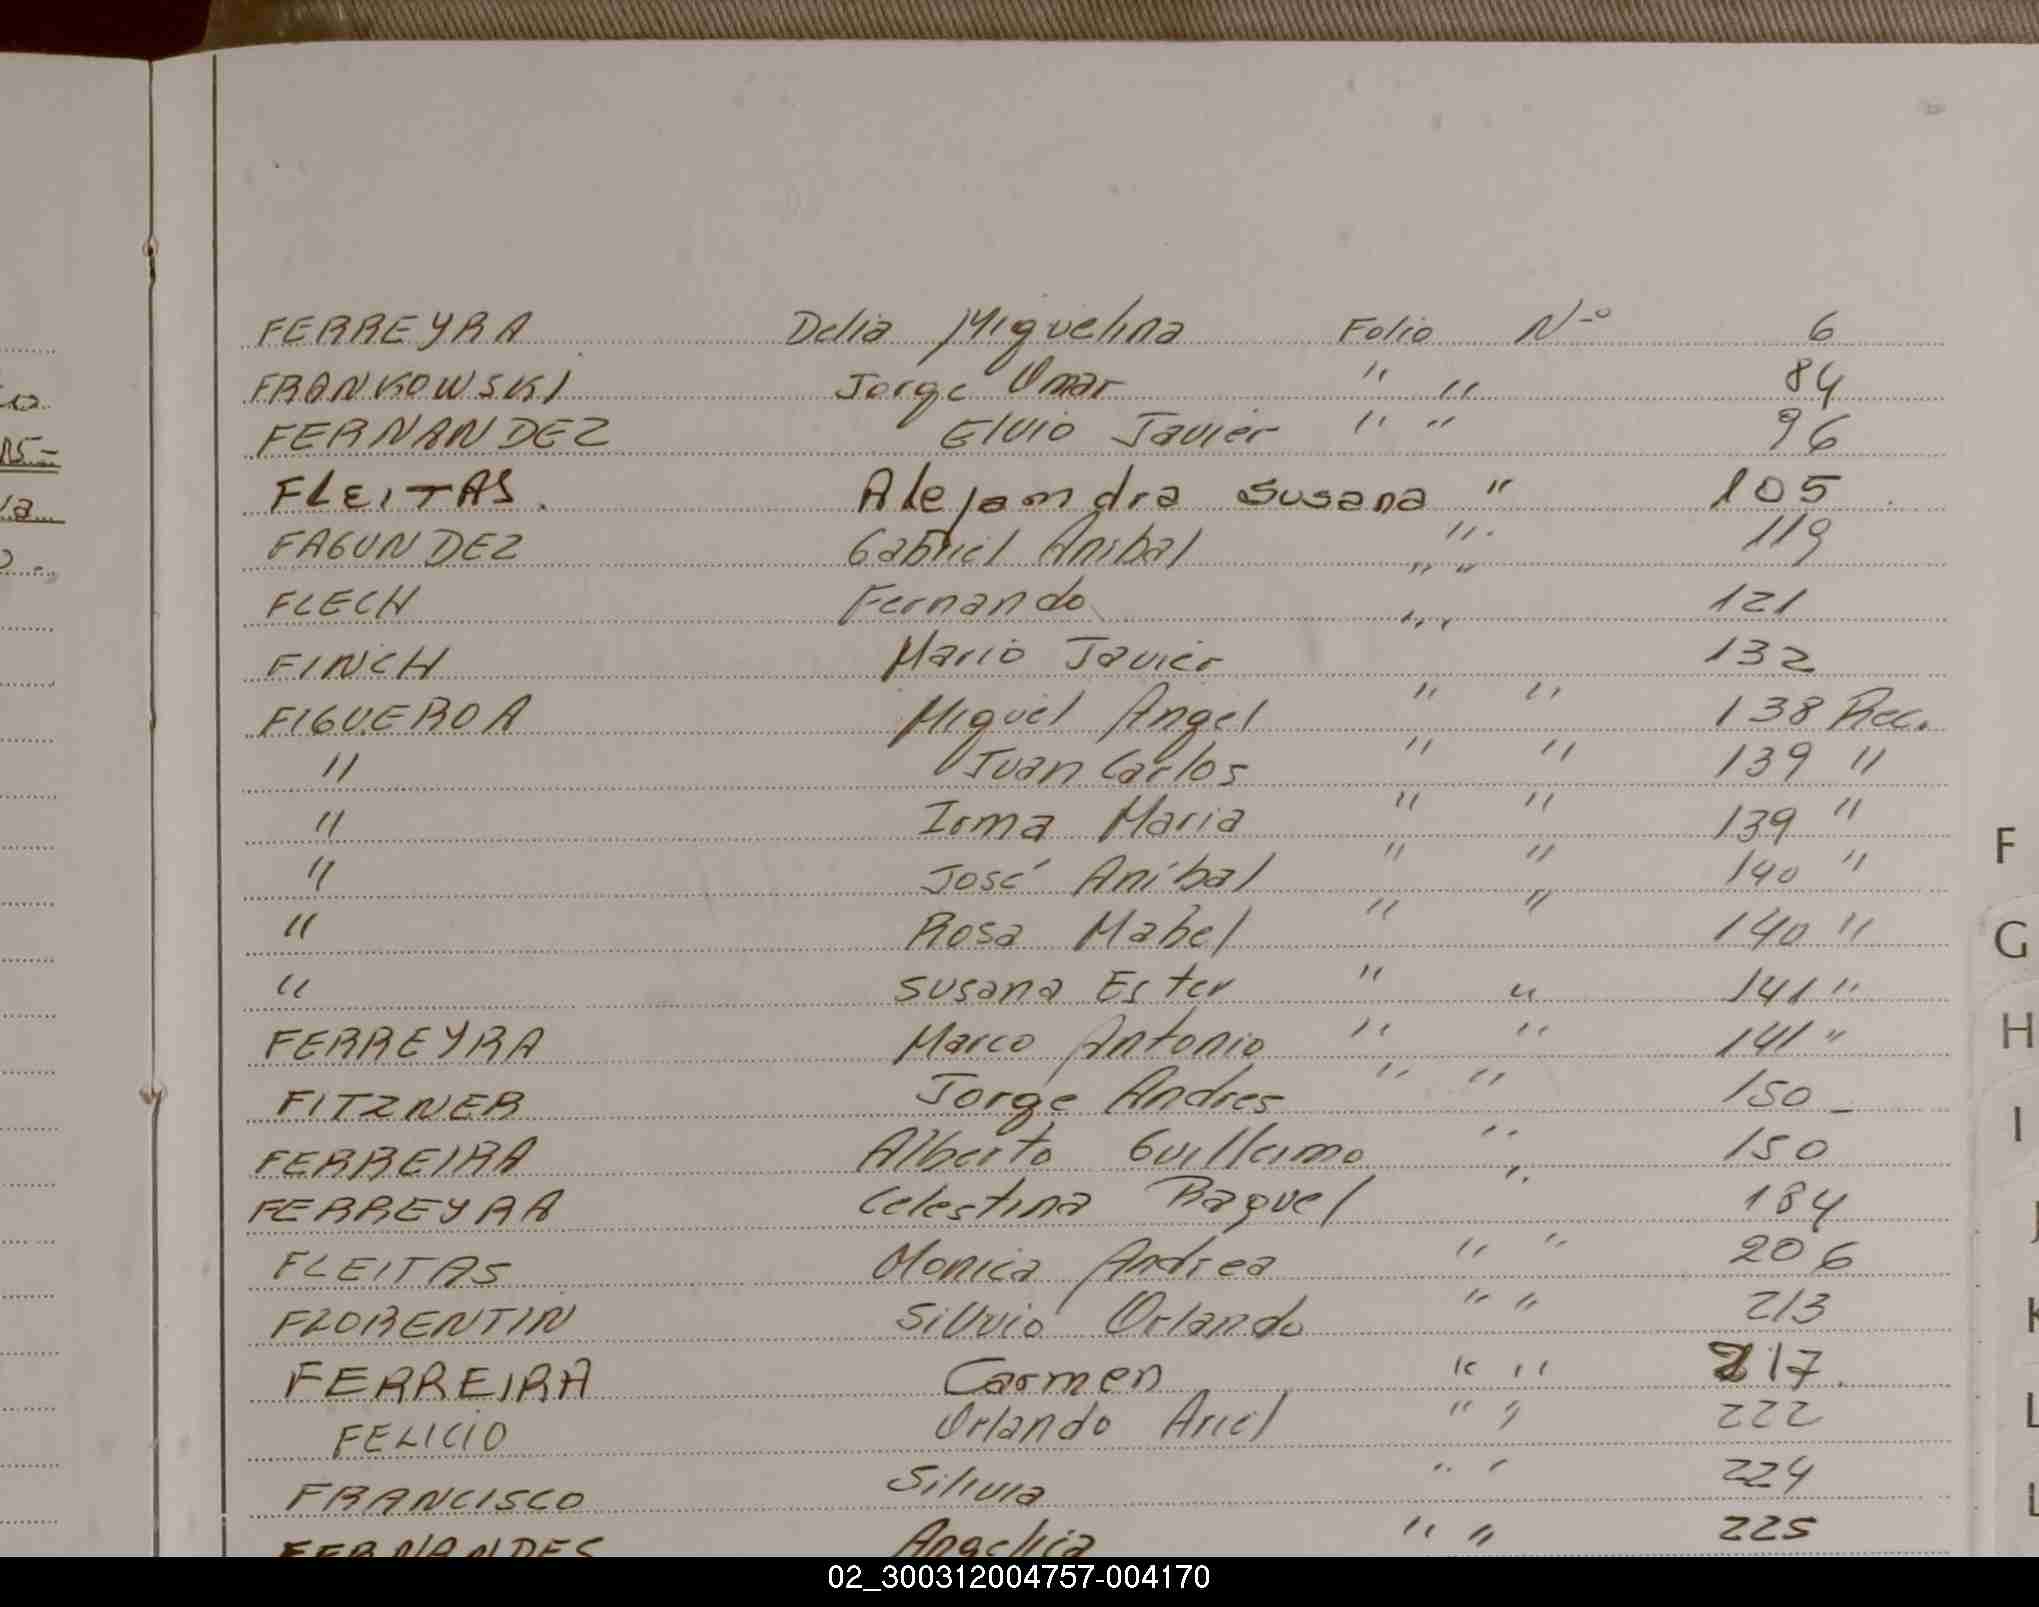 FERREYRA Delia Miguelina Folio N-o 6
FRANKOWSKI Jorge Omar " " 84
FERNANDEZ Elvio Javier " " 96
FLEITAS. Alejandra Susana " 105
FAGUNDEZ Gabriel Anibal " 119
FLECH Fernando " " 121
FINCH Mario Javier " " 132
FIGUEROA Miguel Angel " " 138 Rec.
" Juan Carlos " " 139 "
" Irma Maria " " 139 "
" José Aníbal " " 140 "
" Rosa Mabel " " 140 "
" Susana Ester " " 141 "
FERREYRA Marco Antonio " " 141 "
FITZNER Jorge Andres " " 150 -
FERREIRA Alberto Guillermo " 150
FERREYRA Celestina Raquel " 184
FLEITAS Monica Andrea " " 206
FLORENTIN Silvio Orlando " " 213
FERREIRA Carmen " " 217.
FELICIO Orlando Ariel " " 222
FRANCISCO Silvia " " 224
FERNANDES Angelica " " 225
F
G
H
I
J
K
L
02_300312004757-004170